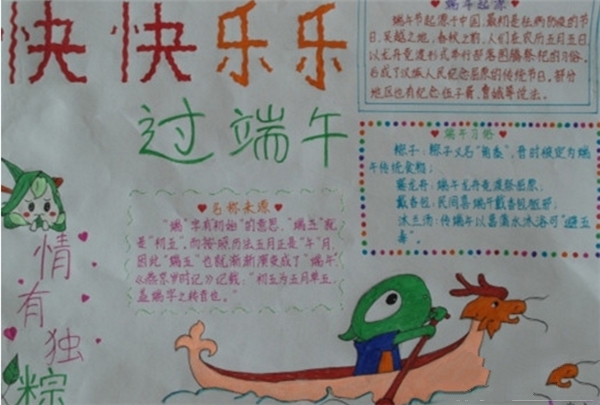 快快乐乐
过端午
端午起源
端午节起源于中国,最初是祛病防疫的节
日,吴越之地,春秋之前,人们在农历五月五日
以龙舟竞渡形式举行部落图腾祭祀的习俗,
后成了汉族人民纪念屈原的传统节日,部分
地区也有纪念伍子胥、曹娥等说法。
端午习俗
粽子:粽子又名“角黍”,晋时被定为端
午传统食粮;
赛龙舟:端午龙舟竞渡祭屈原;
戴香包:民间喜端午戴香包驱邪;
沐兰汤:传端午以菖蒲水沐浴可“避五
毒”。
名称来源
“端”字有“初始”的意思,“端五”就
是“初五”,而按照历法五月正是“午”月,
因此“端五”也就渐渐演变成了“端午”
《燕京岁时记》记载:“初五为五月单五,
盖端字之转音也。”
情
有
独
粽